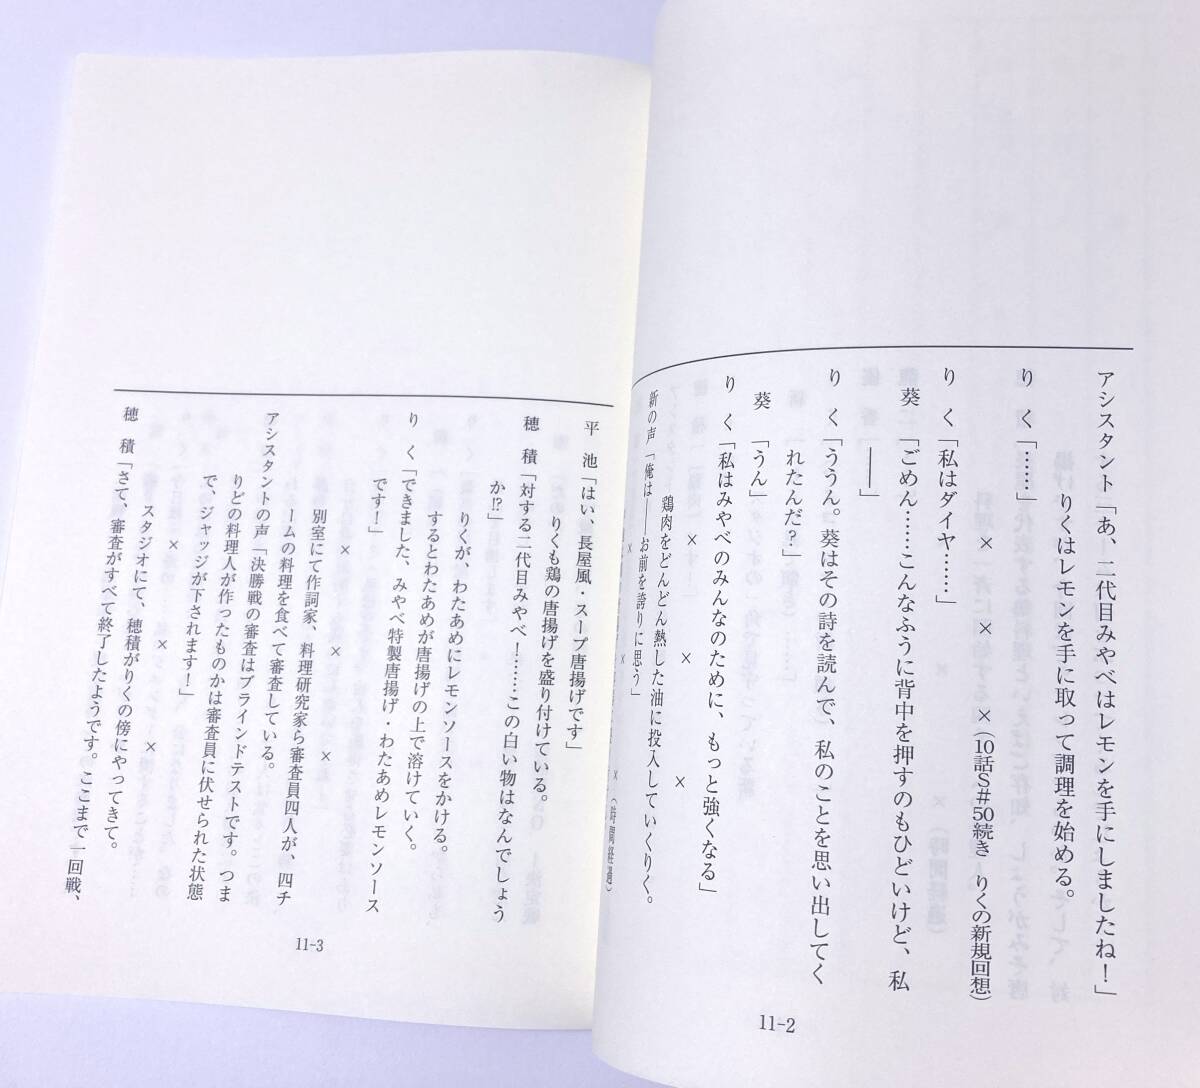 アシスタント「あ、二代目みやべはレモンを手にしましたね！」
りくはレモンを手に取って調理を始める。
りく「……」
× × ×（10話S#50続き りくの新規回想）
りく「私はダイヤ……」
葵「ごめん……こんなふうに背中を押すのもひどいけど、私
――」
りく「ううん。葵はその詩を読んで、私のことを思い出してく
れたんだ？」
葵「うん」
りく「私はみやべのみんなのために、もっと強くなる」
× × ×
鶏肉をどんどん熱した油に投入していくりく。
新の声「俺は――お前を誇りに思う」
× × ×（時間経過）
11-2
平池「はい、長屋風・スープ唐揚げです」
りくも鶏の唐揚げを盛り付けている。
穂積「対する二代目みやべ！……この白い物はなんでしょう
か!?」
りくが、わたあめにレモンソースをかける。
するとわたあめが唐揚げの上で溶けていく。
りく「できました、みやべ特製唐揚げ・わたあめレモンソース
です！」
× × ×
別室にて作詞家、料理研究家ら審査員四人が、四チ
ームの料理を食べて審査している。
アシスタントの声「決勝戦の審査はブラインドテストです。つま
りどの料理人が作ったものかは審査員に伏せられた状態
で、ジャッジが下されます！」
× × ×
スタジオにて、穂積がりくの傍にやってきて。
穂積「さて、審査がすべて終了したようです。ここまで一回戦、
11-3